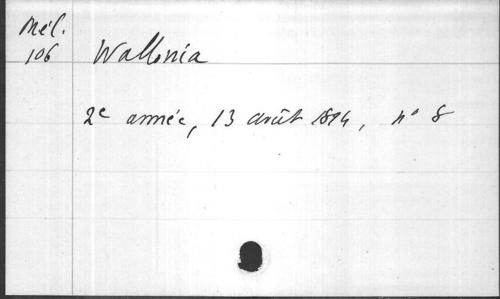 Mél.
106
Wallonia
2e année, 13 août 1894, n° 8